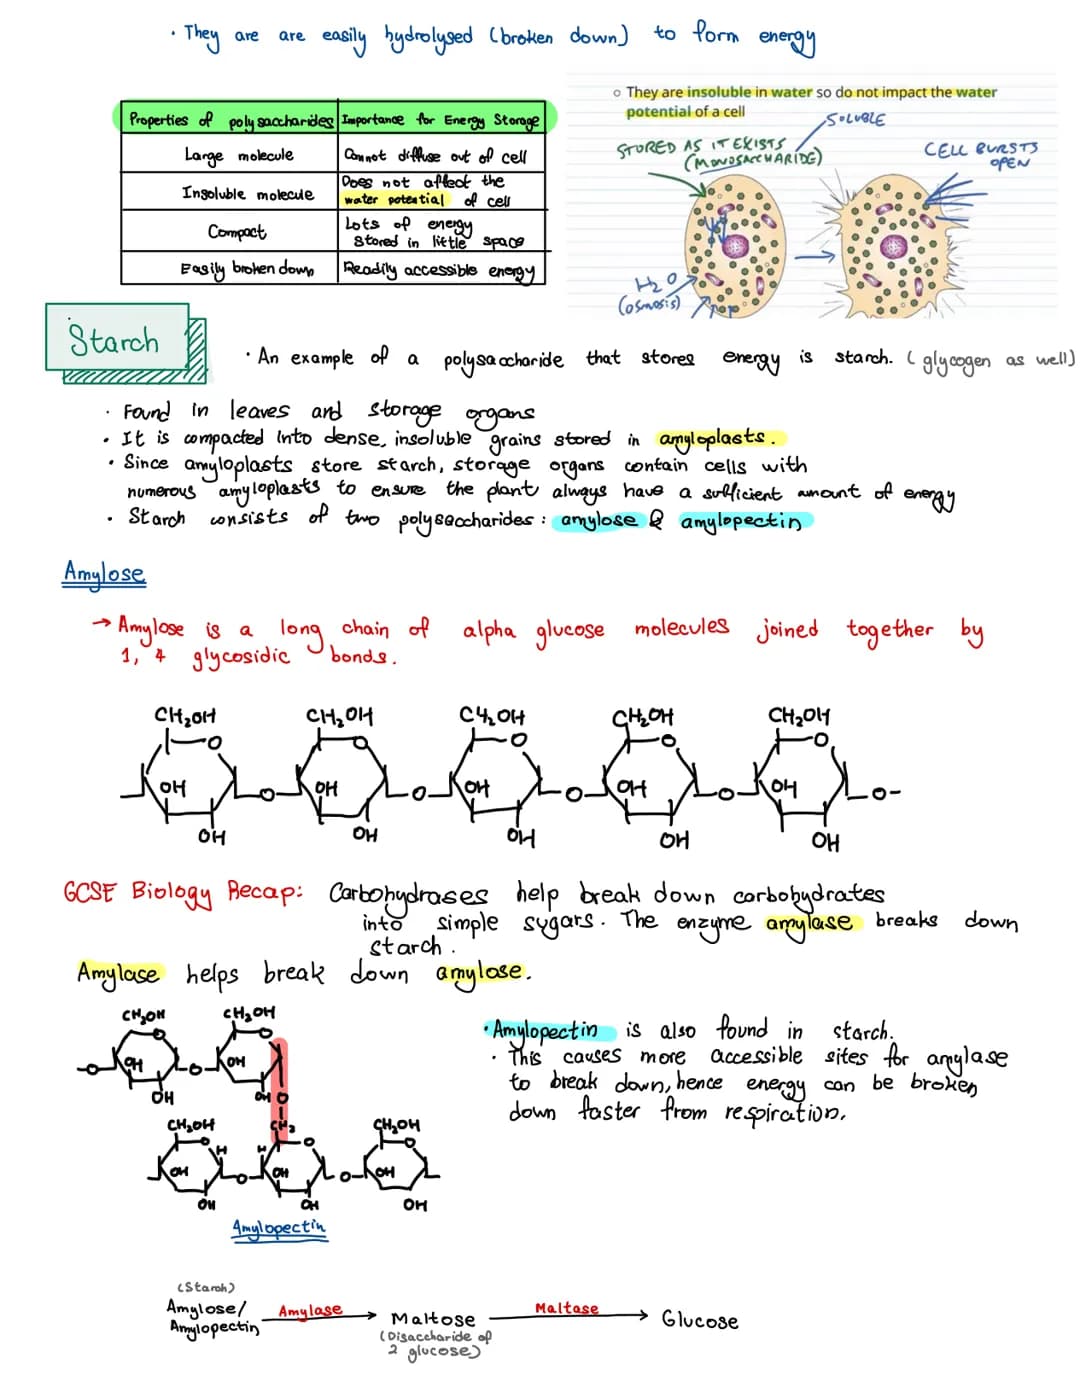 • They are are easily hydrolysed (broken down) to form energy
Properties of polysaccharides Importance for Energy Storage
Large molecule Cannot diffuse out of cell
Insoluble molecule Does not affect the water potential of cell
Compact Lots of energy stored in little space
Easily broken down Readily accessible energy
○ They are insoluble in water so do not impact the water
potential of a cell
SOLUBLE
STORED AS IT EXISTS
(MONOSACCHARIDE)
CELL BURSTS
OPEN
H₂O
(osmosis)
Starch
• An example of a polysaccharide that stores energy is starch. (glycogen as well)
• Found in leaves and storage organs
• It is compacted into dense, insoluble grains stored in amyloplasts.
• Since amyloplasts store starch, storage organs contain cells with
numerous amyloplasts to ensure the plant always have a sufficient amount of energy
• Starch consists of two polysaccharides : amylose & amylopectin
Amylose
→ Amylose is a long chain of alpha glucose molecules joined together by
1, 4 glycosidic bonds.
CH₂OH CH₂OH CH₂OH CH₂OH CH₂OH
O O O O O
OH OH OH OH OH
O O O O O-
OH OH OH OH OH
GCSE Biology Recap: Carbohydrases help break down carbohydrates
into simple sugars. The enzyme amylase breaks down
starch.
Amylase helps break down amylose.
CH₂OH CH₂OH
O O
-O OH O OH
OH OH O
CH₂OH CH₂ CH₂OH
O H H O O
OH O OH O OH
OH OH OH
Amylopectin
• Amylopectin is also found in starch.
• This causes more accessible sites for amylase
to break down, hence energy can be broken
down faster from respiration.
(Starch)
Amylose/
Amylopectin
Amylase
Maltose
(Disaccharide of
2 glucose)
Maltase
Glucose